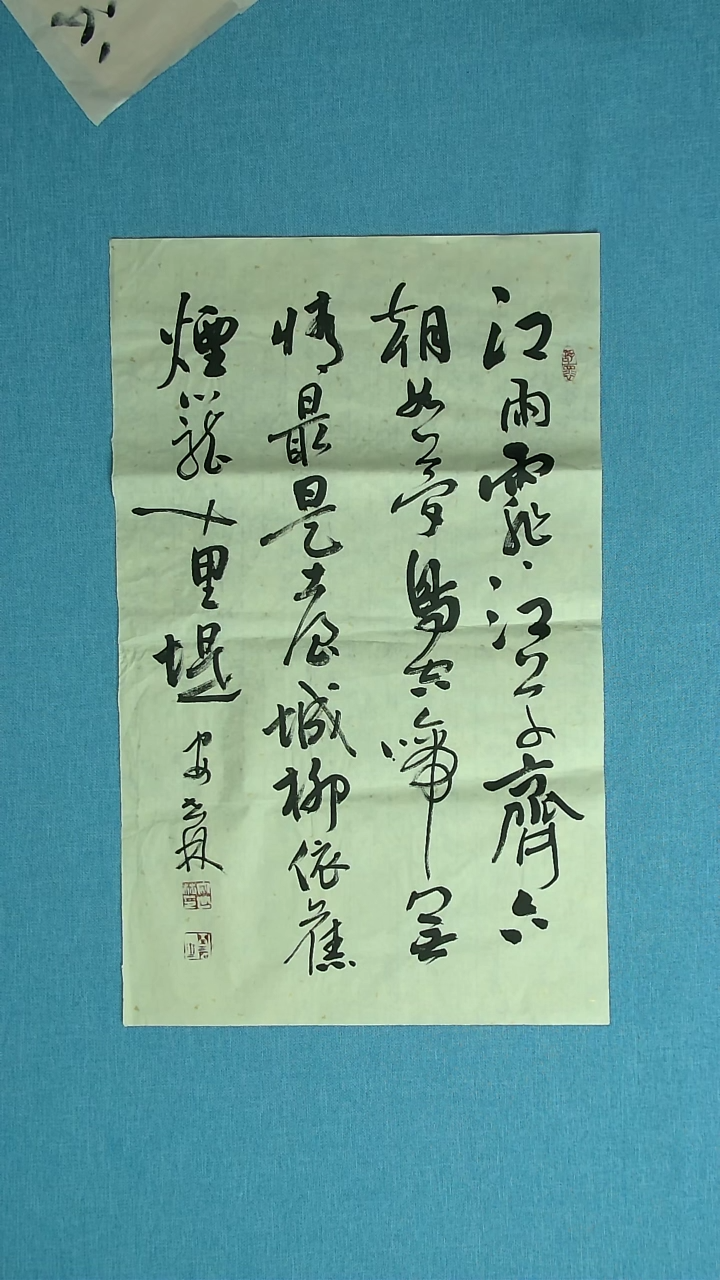 江雨霏〻江草齊六
朝如夢鳥空啼無
情最是臺城柳依舊
煙籠十里堤